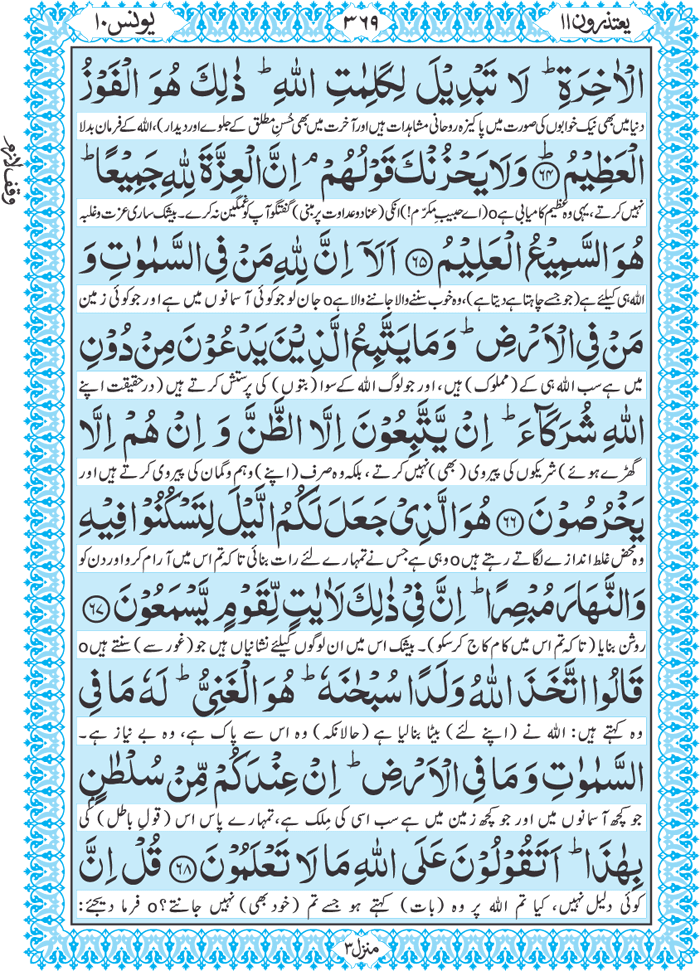 یعتذرون ۱۱
۳۶۹
یونس ۱۰
الْاٰخِرَةِ ؕ لَا تَبْدِیْلَ لِكَلِمٰتِ اللّٰهِ ؕ ذٰلِكَ هُوَ الْفَوْزُ
دنیا میں بھی نیک خوابوں کی صورت میں پاکیزہ روحانی مشاہدات ہیں اور آخرت میں بھی حُسنِ مطلق کے جلوے اور دیدار)، اللہ کے فرمان بدلا
الْعَظِیْمُ ؕ﴿۶۴﴾ وَلَا یَحْزُنْكَ قَوْلُهُمْ ۘ اِنَّ الْعِزَّةَ لِلّٰهِ جَمِیْعًا ؕ
وقف لازم
نہیں کرتے، یہی وہ عظیم کامیابی ہے o (اے حبیبِ مکرّم!) انکی (عناد و عداوت پر مبنی) گفتگو آپ کو غمگین نہ کرے۔ بیشک ساری عزت و غلبہ
هُوَ السَّمِیْعُ الْعَلِیْمُ ﴿۶۵﴾ اَلَاۤ اِنَّ لِلّٰهِ مَنْ فِی السَّمٰوٰتِ وَ
اللہ ہی کیلئے ہے (جو جسے چاہتا ہے دیتا ہے)، وہ خوب سننے والا جاننے والا ہے o جان لو جو کوئی آسمانوں میں ہے اور جو کوئی زمین
مَنْ فِی الْاَرْضِ ؕ وَمَا یَتَّبِعُ الَّذِیْنَ یَدْعُوْنَ مِنْ دُوْنِ
میں ہے سب اللہ ہی کے (مملوک) ہیں، اور جو لوگ اللہ کے سوا (بتوں) کی پرستش کرتے ہیں (درحقیقت اپنے
اللّٰهِ شُرَكَآءَ ؕ اِنْ یَّتَّبِعُوْنَ اِلَّا الظَّنَّ وَ اِنْ هُمْ اِلَّا
گھڑے ہوئے) شریکوں کی پیروی (بھی) نہیں کرتے، بلکہ وہ صرف (اپنے) وہم و گمان کی پیروی کرتے ہیں اور
یَخْرُصُوْنَ ﴿۶۶﴾ هُوَ الَّذِیْ جَعَلَ لَكُمُ الَّیْلَ لِتَسْكُنُوْا فِیْهِ
وہ محض غلط اندازے لگاتے رہتے ہیں o وہی ہے جس نے تمہارے لئے رات بنائی تاکہ تم اس میں آرام کرو اور دن کو
وَالنَّهَارَ مُبْصِرًا ؕ اِنَّ فِیْ ذٰلِكَ لَاٰیٰتٍ لِّقَوْمٍ یَّسْمَعُوْنَ ﴿۶۷﴾
روشن بنایا (تاکہ تم اس میں کام کاج کر سکو)۔ بیشک اس میں ان لوگوں کیلئے نشانیاں ہیں جو (غور سے) سنتے ہیں o
قَالُوا اتَّخَذَ اللّٰهُ وَلَدًا سُبْحٰنَهٗ ؕ هُوَ الْغَنِیُّ ؕ لَهٗ مَا فِی
وہ کہتے ہیں: اللہ نے (اپنے لئے) بیٹا بنالیا ہے (حالانکہ) وہ اس سے پاک ہے، وہ بے نیاز ہے۔
السَّمٰوٰتِ وَمَا فِی الْاَرْضِ ؕ اِنْ عِنْدَكُمْ مِّنْ سُلْطٰنٍۭ
جو کچھ آسمانوں میں اور جو کچھ زمین میں ہے سب اسی کی مِلک ہے، تمہارے پاس اس (قولِ باطل) کی
بِهٰذَا ؕ اَتَقُوْلُوْنَ عَلَی اللّٰهِ مَا لَا تَعْلَمُوْنَ ﴿۶۸﴾ قُلْ اِنَّ
کوئی دلیل نہیں، کیا تم اللہ پر وہ (بات) کہتے ہو جسے تم (خود بھی) نہیں جانتے؟ o فرما دیجئے:
منزل ۳